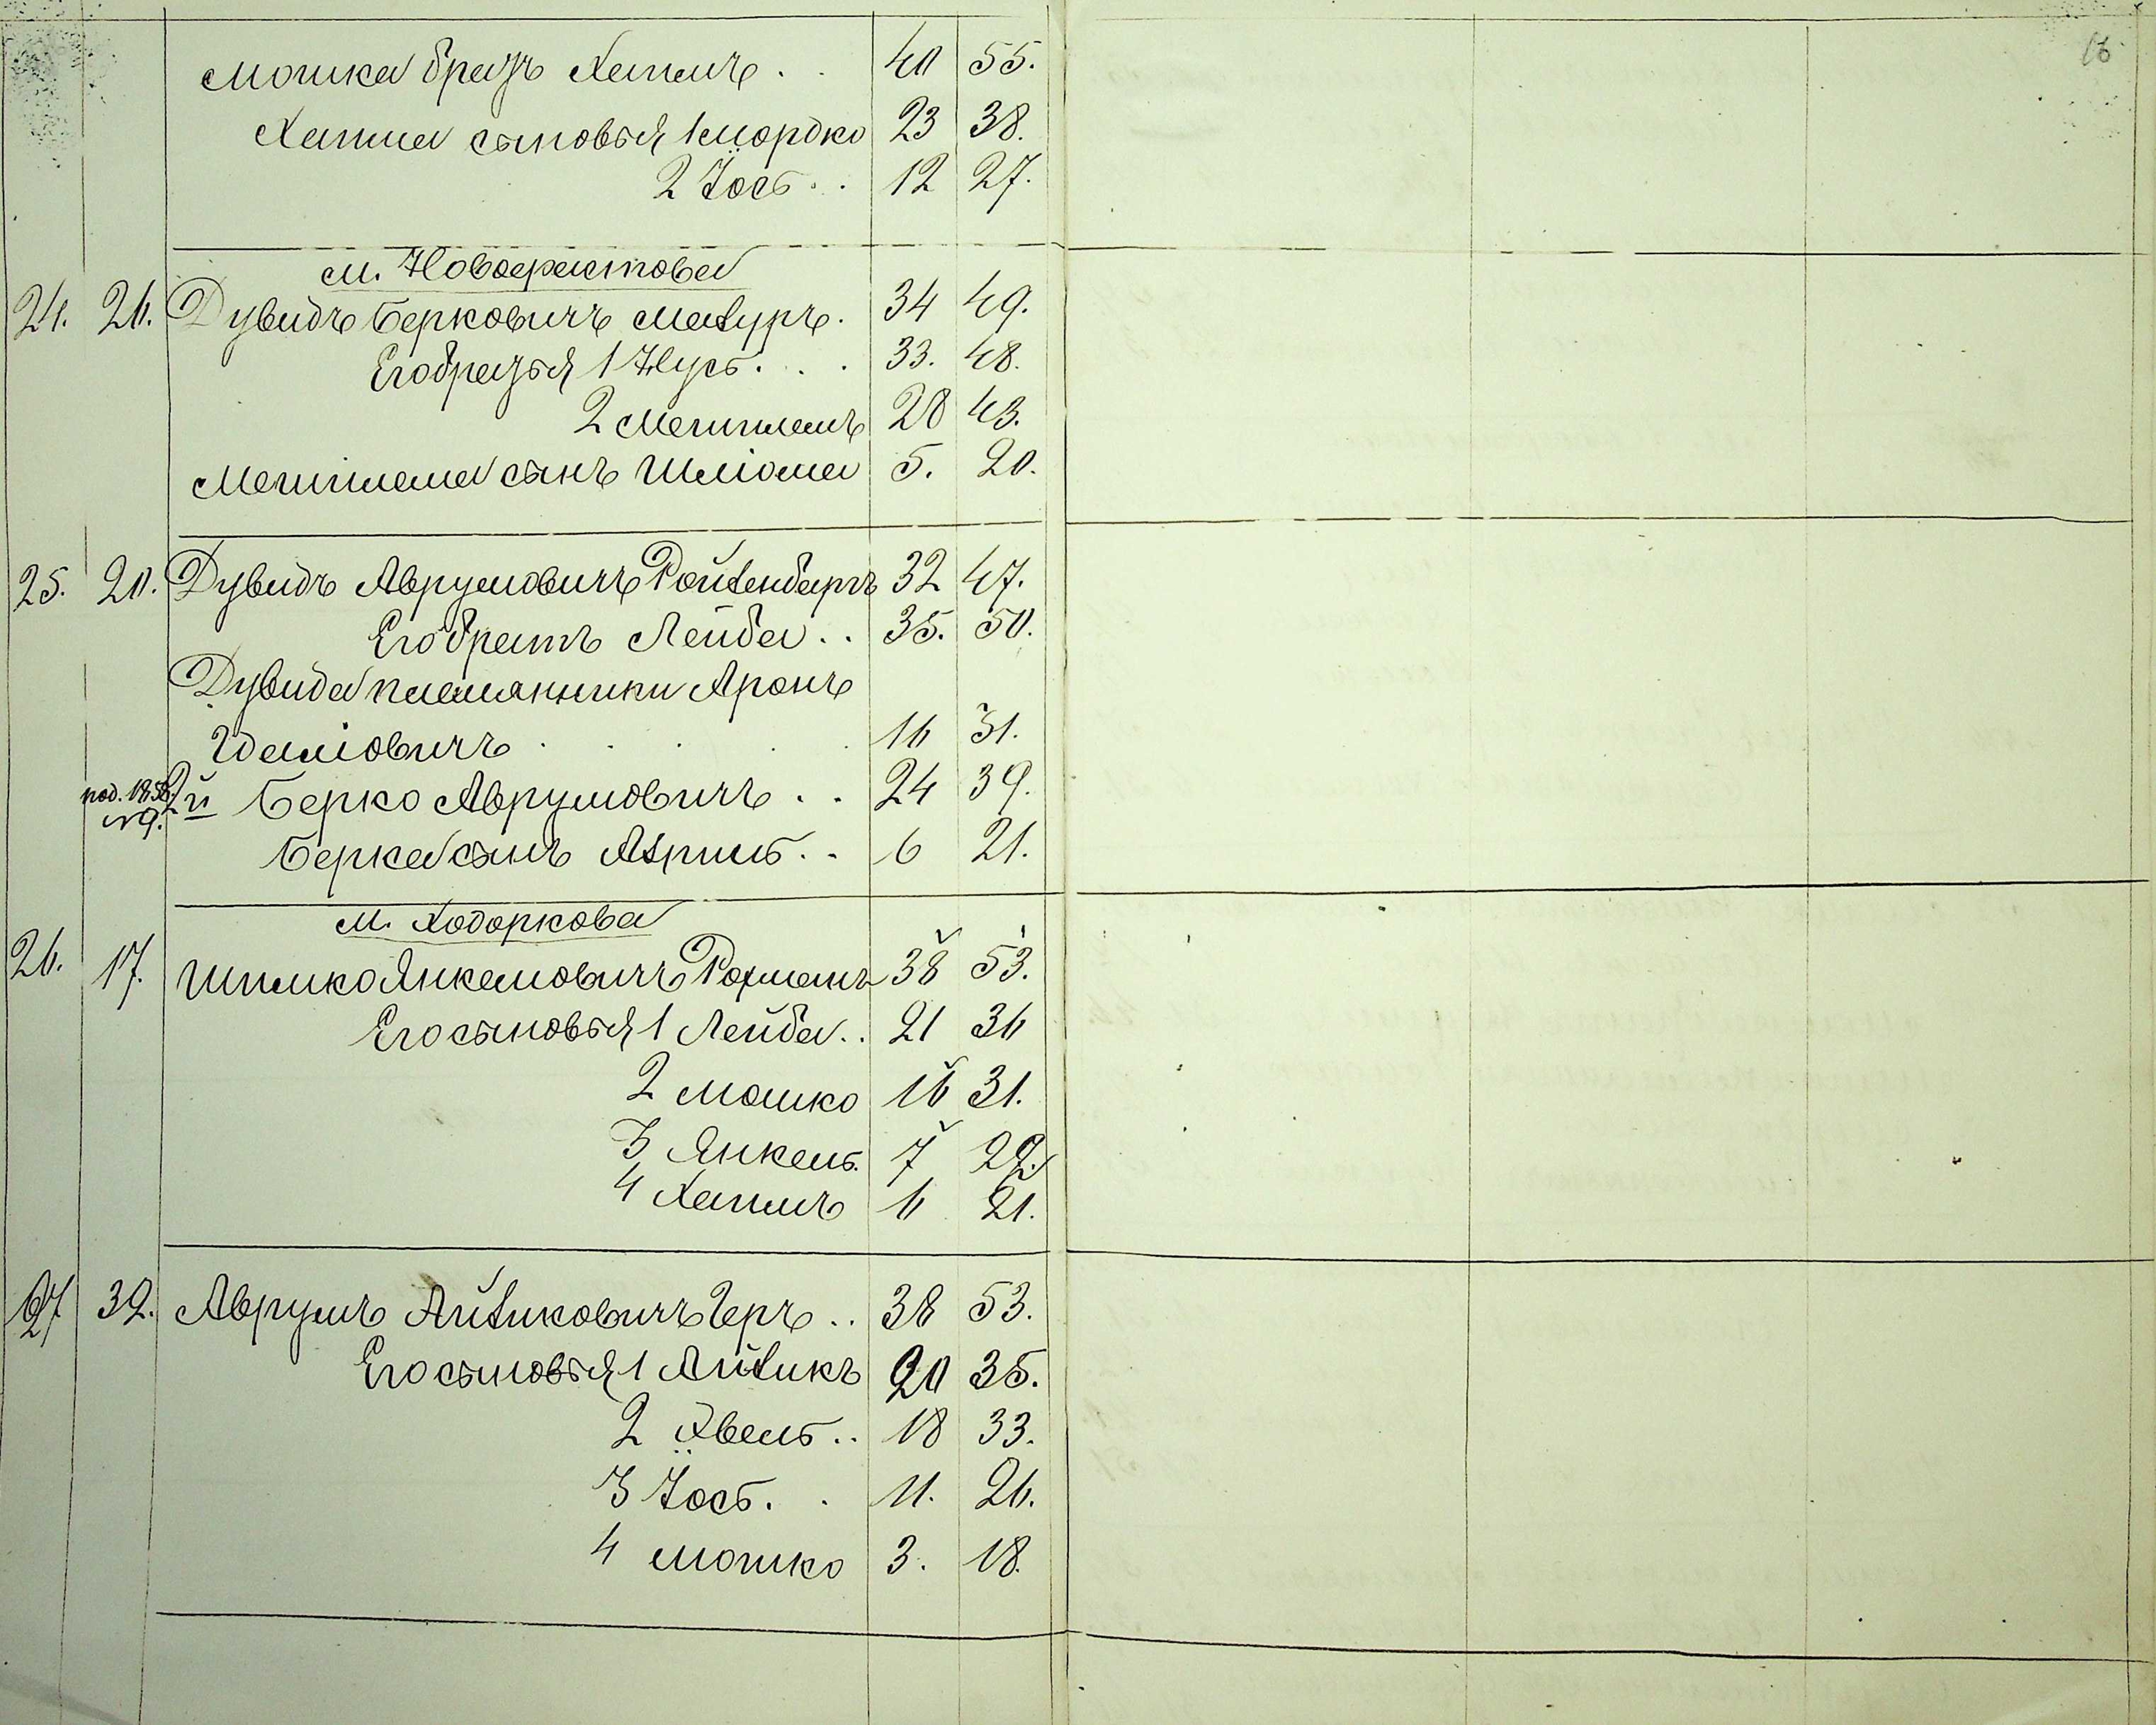 16
Мошка братъ Хаимъ . . 40 55.
Хаима сыновья 1 Мордко 23 38.
2 Іось . . 12 27.
м. Новофастова
24. 26. Дувидъ Берковичъ Мазуръ . 34 49.
Его братья 1 Нусь . . . 33. 48.
2 Мешиламъ 28 43.
Мешилама сынъ Шліома 5. 20.
25. 20. Дувидъ Аврумовичъ Ройзенбергъ 32 47.
Его братъ Лейба . . 35. 50.
Дувида племянники Аронъ
Шліомовичъ . . . . . 16 31.
род. 1858. 2й Берко Аврумовичъ . . 24 39.
№ 9.
Берка сынъ Азриль . . 6 21.
м. Ходоркова
26. 17. Шимко Янкелювичъ Рохманъ 38 53.
Его сыновья 1 Лейба . . 21 36
2 Мошко 16 31.
3 Янкель. 7 22.
4 Хаимъ 6 21.
27 32. Аврумъ Айзиковичъ Геръ . . 38 53.
Его сыновья 1 Айзикъ 20 35.
2 Хвель . . 18 33.
3 Іось . . 11. 26.
4 Мошко 3. 18.